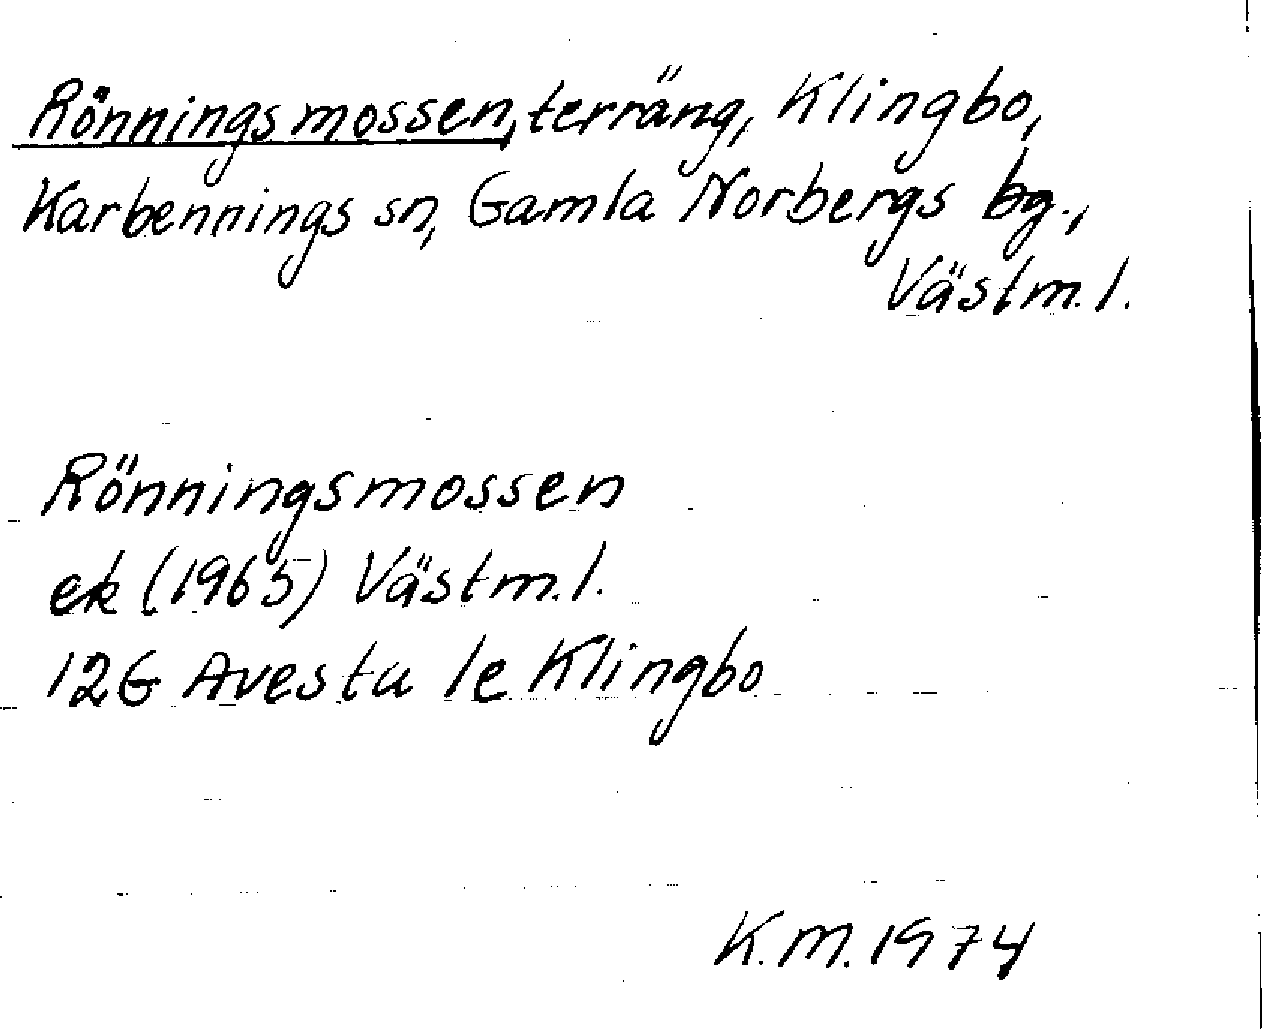 Rönningsmossen, terräng, Klingbo,
Karbennings sn, Gamla Norbergs bg.,
Västm.l.
Rönningsmossen
ek (1965) Västm.l.
12G Avesta le Klingbo
K.M. 1974